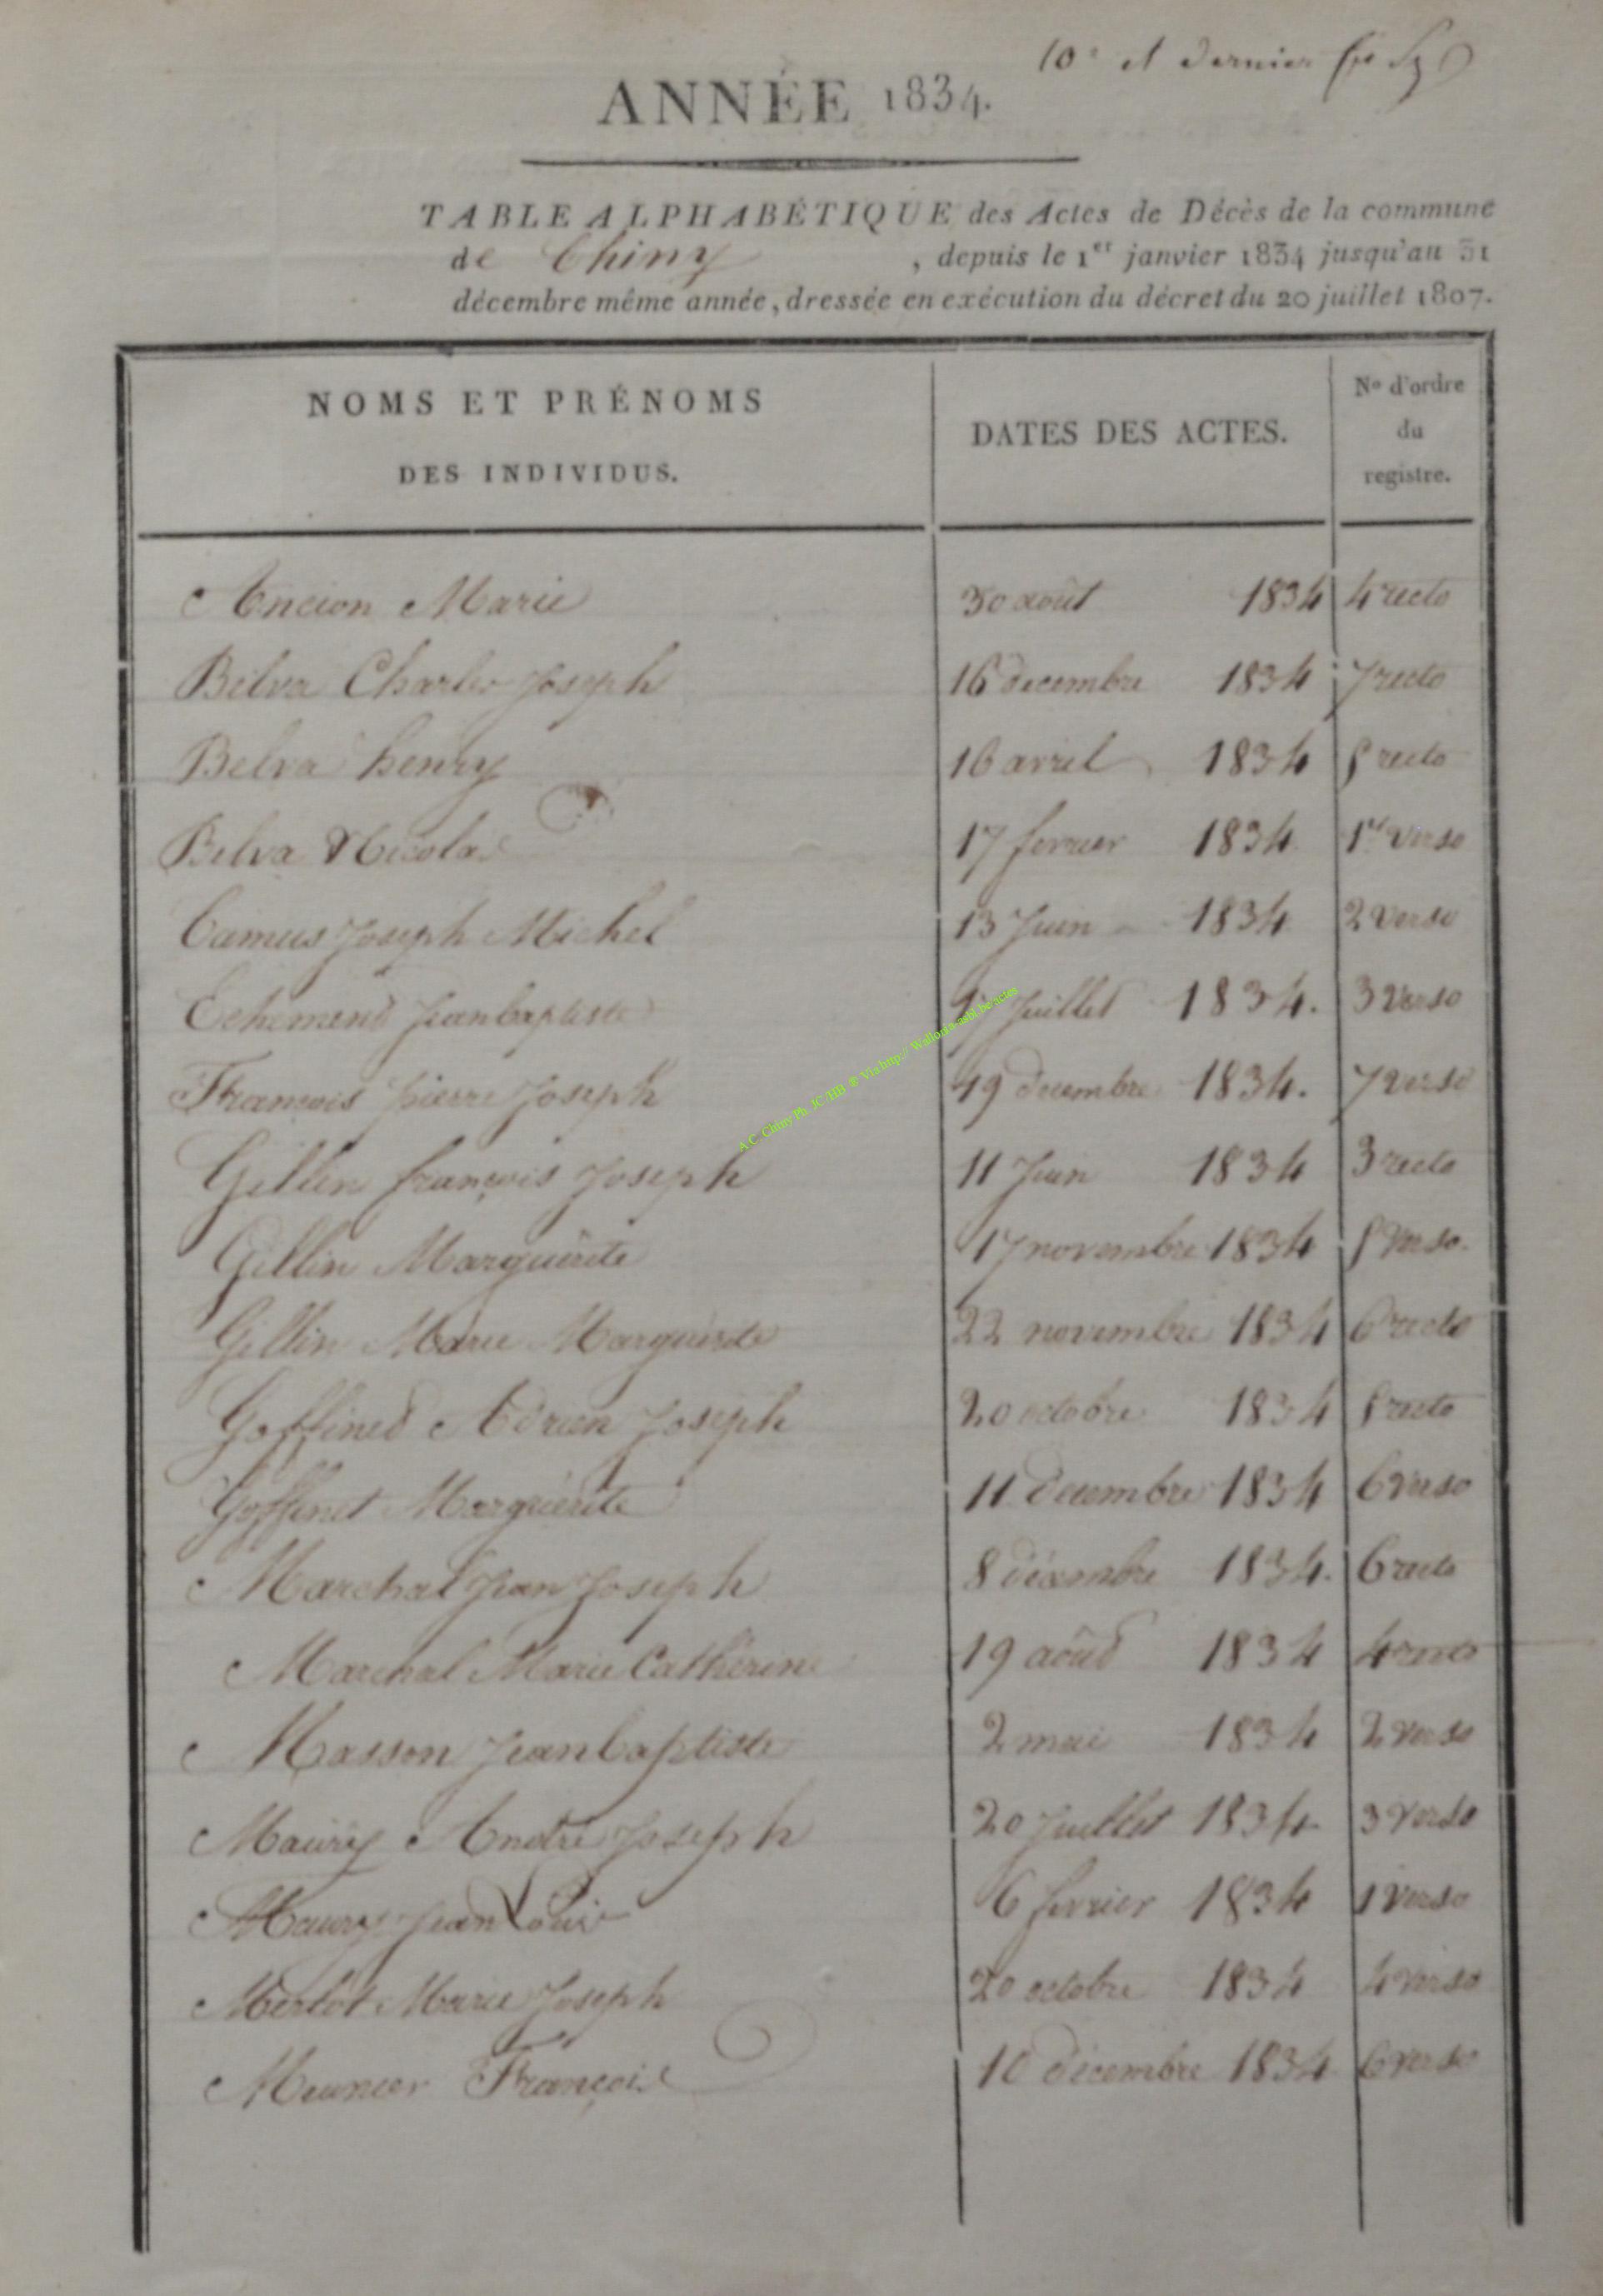 10e et dernier
ANNÉE 1834.
TABLE ALPHABÉTIQUE des Actes de Décès de la commune
de Chiny , depuis le 1er janvier 1834 jusqu'au 31
décembre même année, dressée en exécution du décret du 20 juillet 1807.
NOMS ET PRÉNOMS
DES INDIVIDUS.
DATES DES ACTES.
No d'ordre
du
registre.
Ancion Marie 30 août 1834 4 recto
Belva Charles Joseph 16 decembre 1834 7 recto
Belva henry 16 avril 1834 recto
Belva Nicolas 17 fevrier 1834 1er verso
Camus Joseph Michel 13 Juin 1834 2 verso
Echement Jean baptiste Juillet 1834. 3 verso
François pierre Joseph 19 decembre 1834. 7 verso
Gillin françois Joseph 11 Juin 1834 3 recto
Gillin Marguerite 17 novembre 1834 verso.
Gillin Marie Marguerite 22 novembre 1834 6 recto
Goffinet Adrien Joseph 20 octobre 1834 recto
Goffinet Marguerite 11 decembre 1834 6 verso
Marchal Jean Joseph 8 décembre 1834. 6 recto
Marchal Marie Catherine 19 août 1834 4 recto
Masson Jean baptiste 2 mai 1834 2 verso
Maury Andre Joseph 20 Juillet 1834 3 verso
Maury Jean Louis 6 fevrier 1834 1 verso
Merlot Marie Joseph 20 octobre 1834 4 verso
Meunier François 10 décembre 1834 6 verso
A.C. Chiny Ph. JC/HB ® Via http:// Wallonia-asbl.be/actes